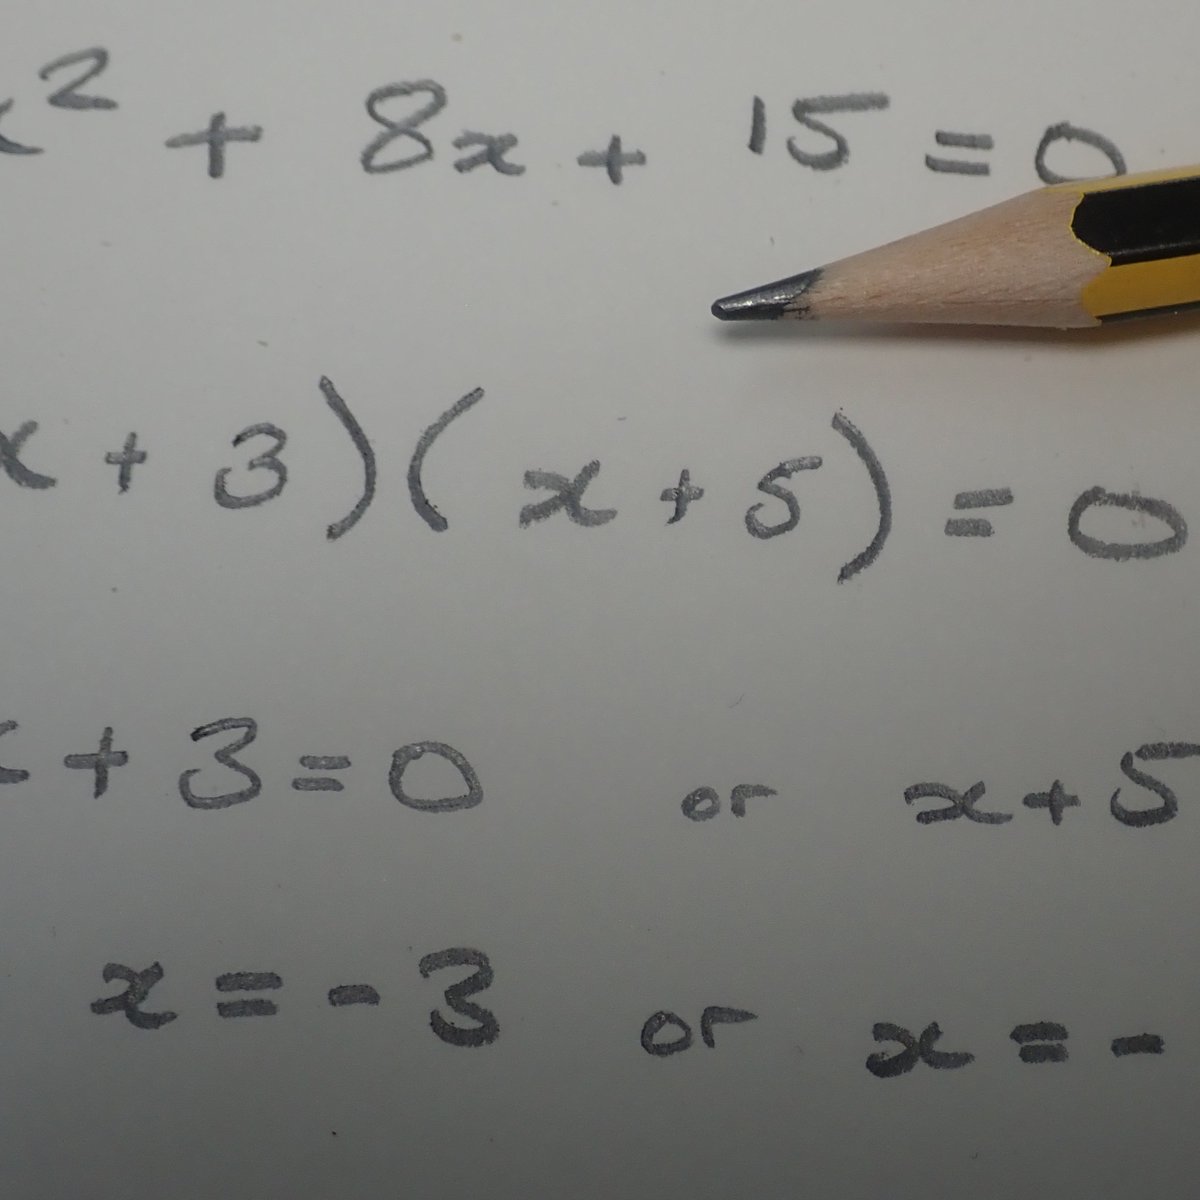 x² + 8x + 15 = 0
x + 3)(x + 5) = 0
x + 3 = 0 or x + 5
x = -3 or x = -